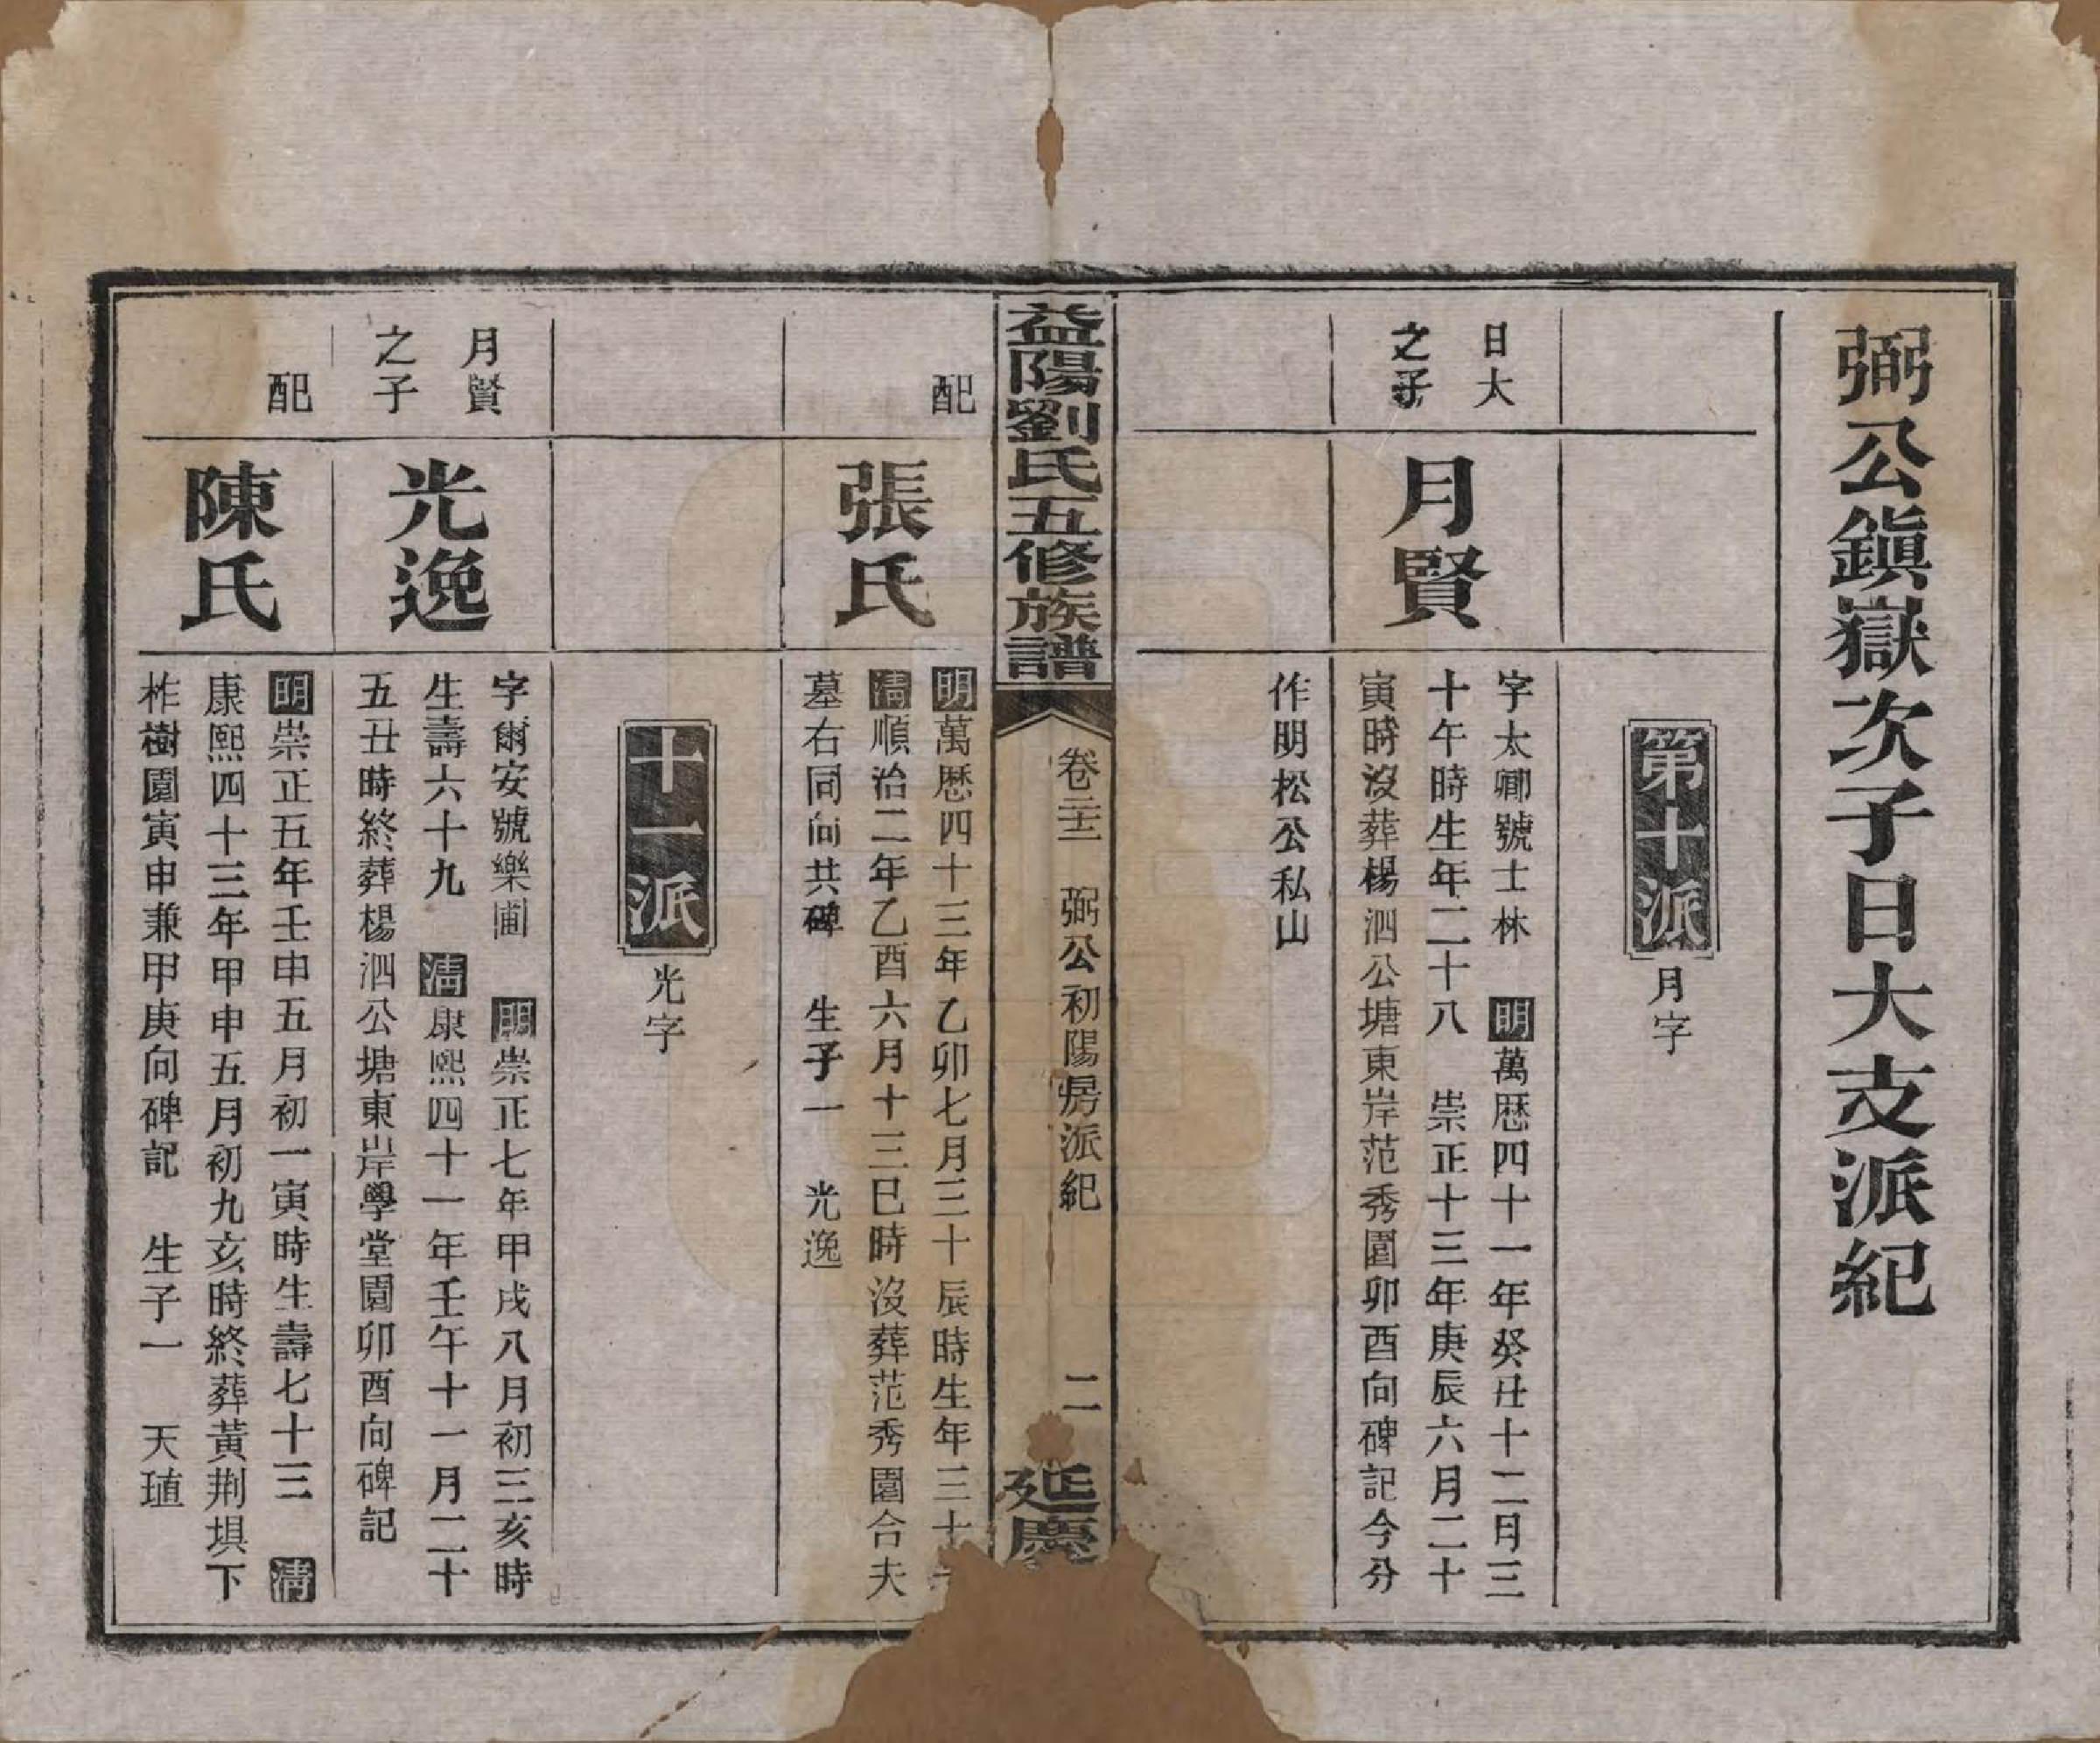 弼公鎮嶽次子日大支派紀
第十派
月字
日大
之子
月賢
字太卿號士林　明萬歷四十一年癸丑十二月三
十午時生年二十八　崇正十三年庚辰六月二十
寅時沒葬楊泗公塘東岸范秀園卯酉向碑記今分
作明松公私山
益陽劉氏五修族譜
卷二十二　弼公初陽房派紀
二
延慶
配
張氏
明萬歷四十三年乙卯七月三十辰時生年三十
清順治二年乙酉六月十三巳時沒葬范秀園合夫
墓右同向共碑　生子一　光逸
十一派
光字
月賢
之子
光逸
字爾安號樂圃　明崇正七年甲戌八月初三亥時
生壽六十九　清康熙四十一年壬午十一月二十
五丑時終葬楊泗公塘東岸學堂園卯酉向碑記
配
陳氏
明崇正五年壬申五月初一寅時生壽七十三　清
康熙四十三年甲申五月初九亥時終葬黃荆垻下
柞樹園寅申兼甲庚向碑記　生子一　天瑄